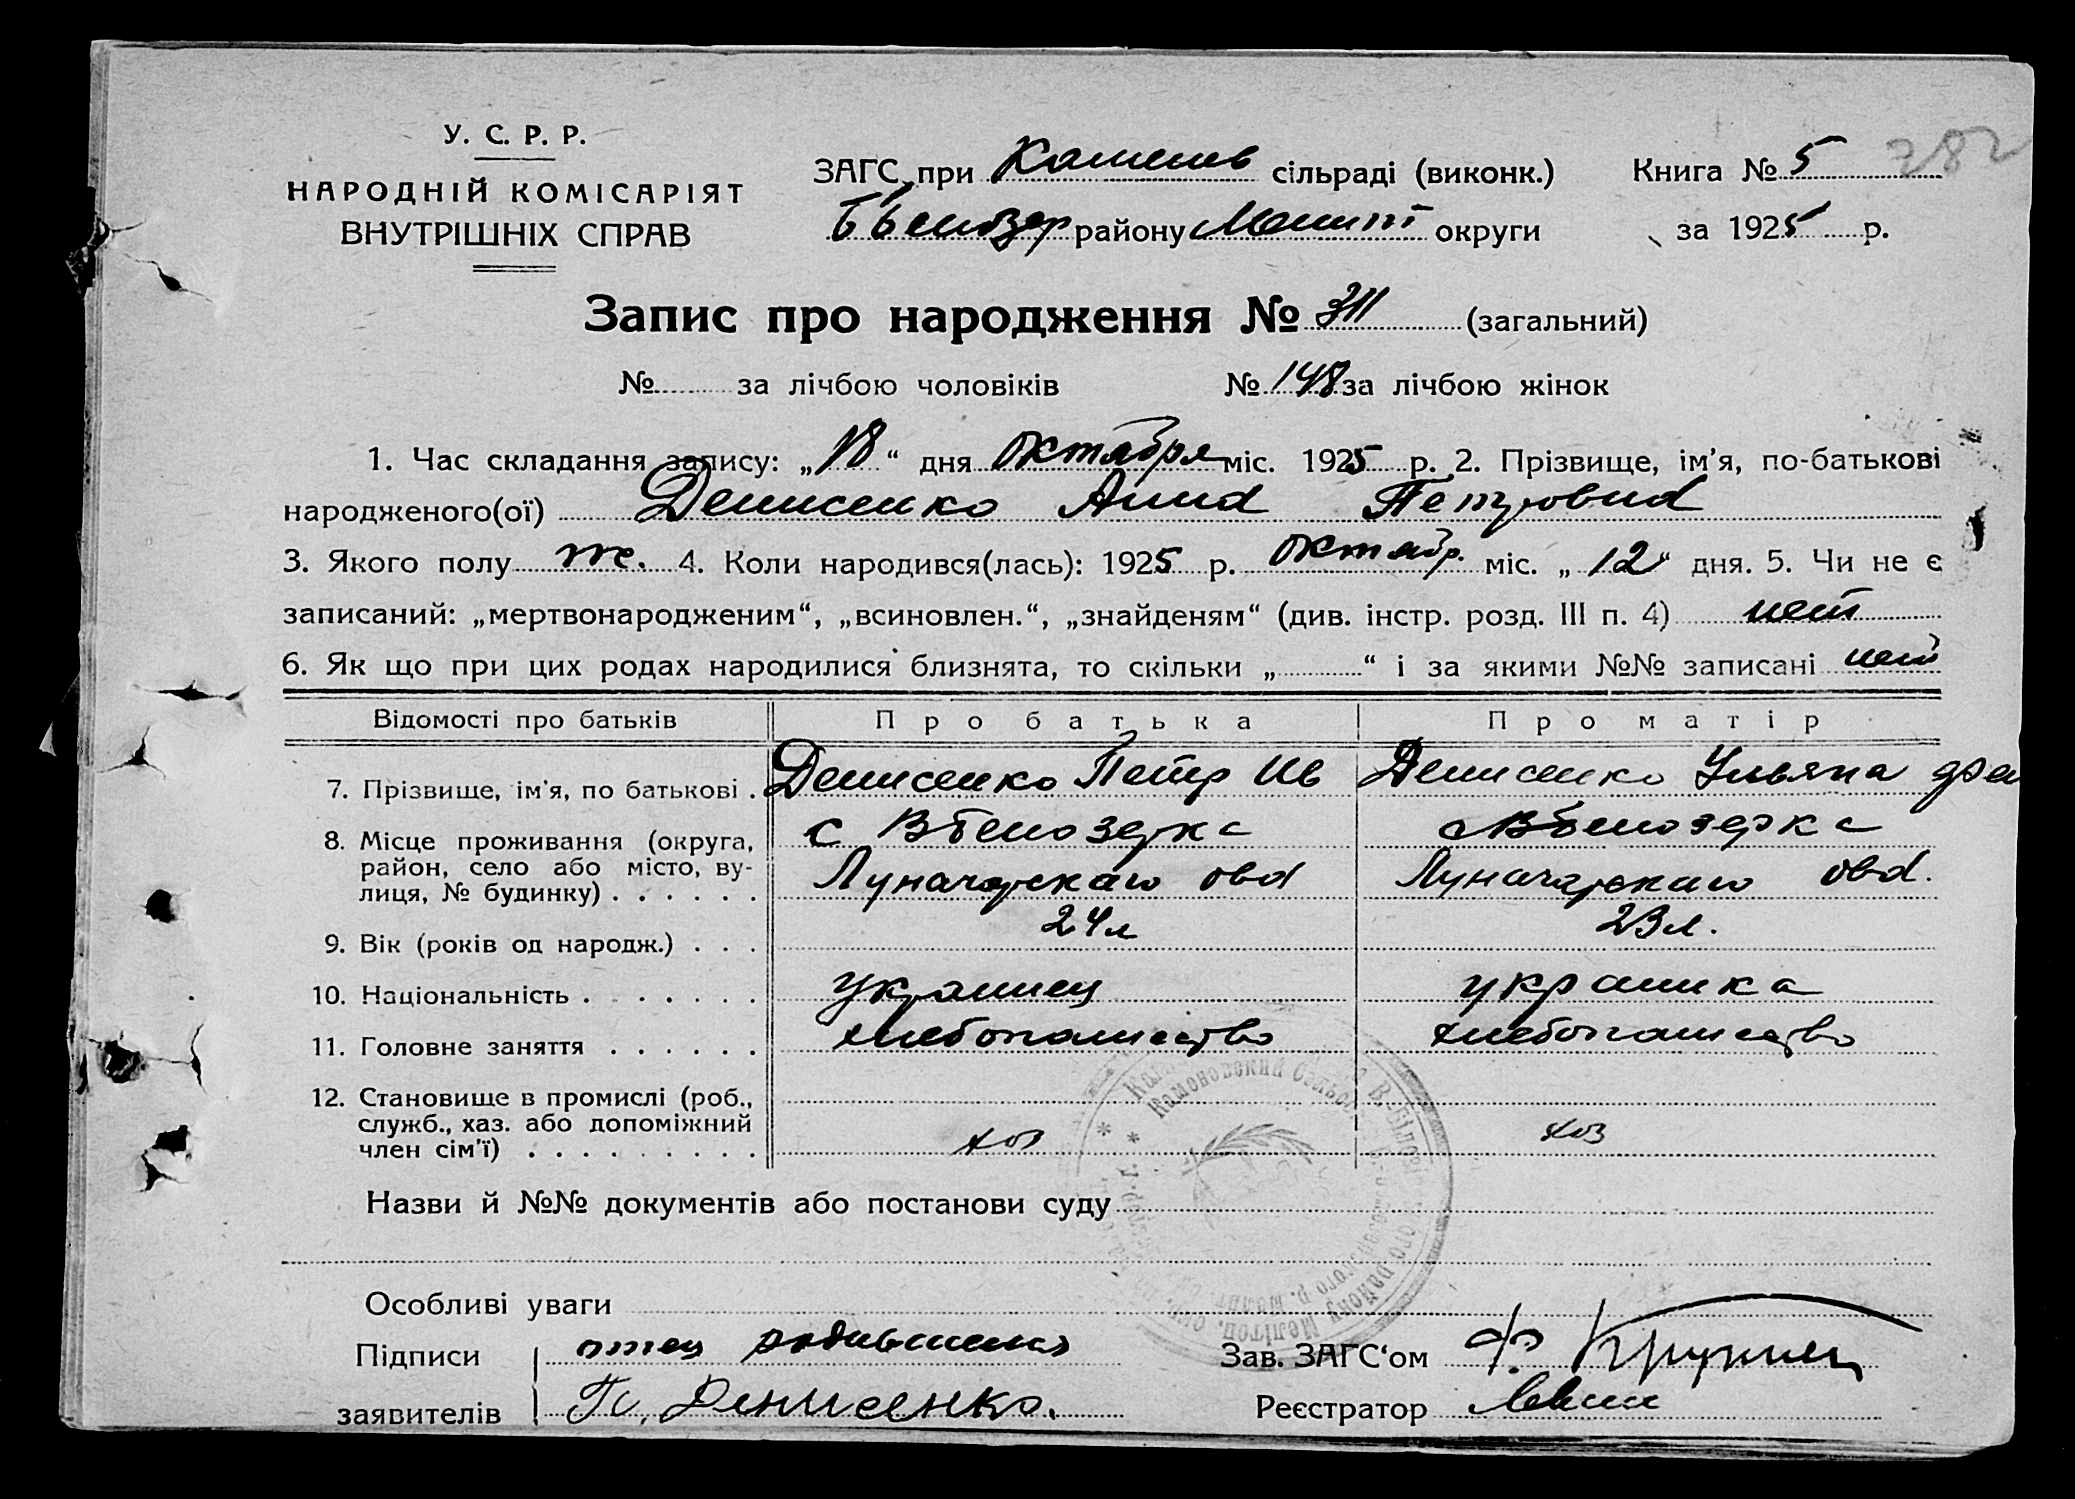 У. С. Р. Р.
НАРОДНІЙ КОМІСАРІЯТ
ВНУТРІШНІХ СПРАВ
ЗАГС при Каменев сільраді (виконк.)
району Мелит округи
Книга № 5
за 1925 р.
282
Запис про народження № 311 (загальний)
№ за лічбою чоловіків № 148 за лічбою жінок
1. Час складання запису: „18“ дня октября міс. 1925 р. 2. Прізвище, ім’я, по-батькові
народженого(ої) Денисенко Анна Петровна
3. Якого полу же. 4. Коли народився(лась): 1925 р. октябр. міс. „12“ дня. 5. Чи не є
записаний: „мертвонародженим“, „всиновлен.“, „знайденям“ (див. інстр. розд. III п. 4) нет
6. Як що при цих родах народилися близнята, то скільки „ “ і за якими №№ записані нет
Відомості про батьків Про батька Про матір
7. Прізвище, ім’я, по батькові . Денисенко Петр Ив Денисенко Ульяна
8. Місце проживання (округа, с Вбелозерка с Вбелозерка
район, село або місто, ву-
лиця, № будинку) . . . . . . Луначарскаго Луначарскаго
9. Вік (років од народж.) . . . 24 л 23 л.
10. Національність . . . . . . . украинец украинка
11. Головне заняття . . . . . . хлебопашество хлебопашество
12. Становище в промислі (роб.,
служб., хаз. або допоміжний
член сім’ї) . . . . . . . . . хоз хоз
Назви й №№ документів або постанови суду
Особливі уваги
Підписи отец
заявителів П. Денисенко.
Зав. ЗАГС‘ом
Реєстратор